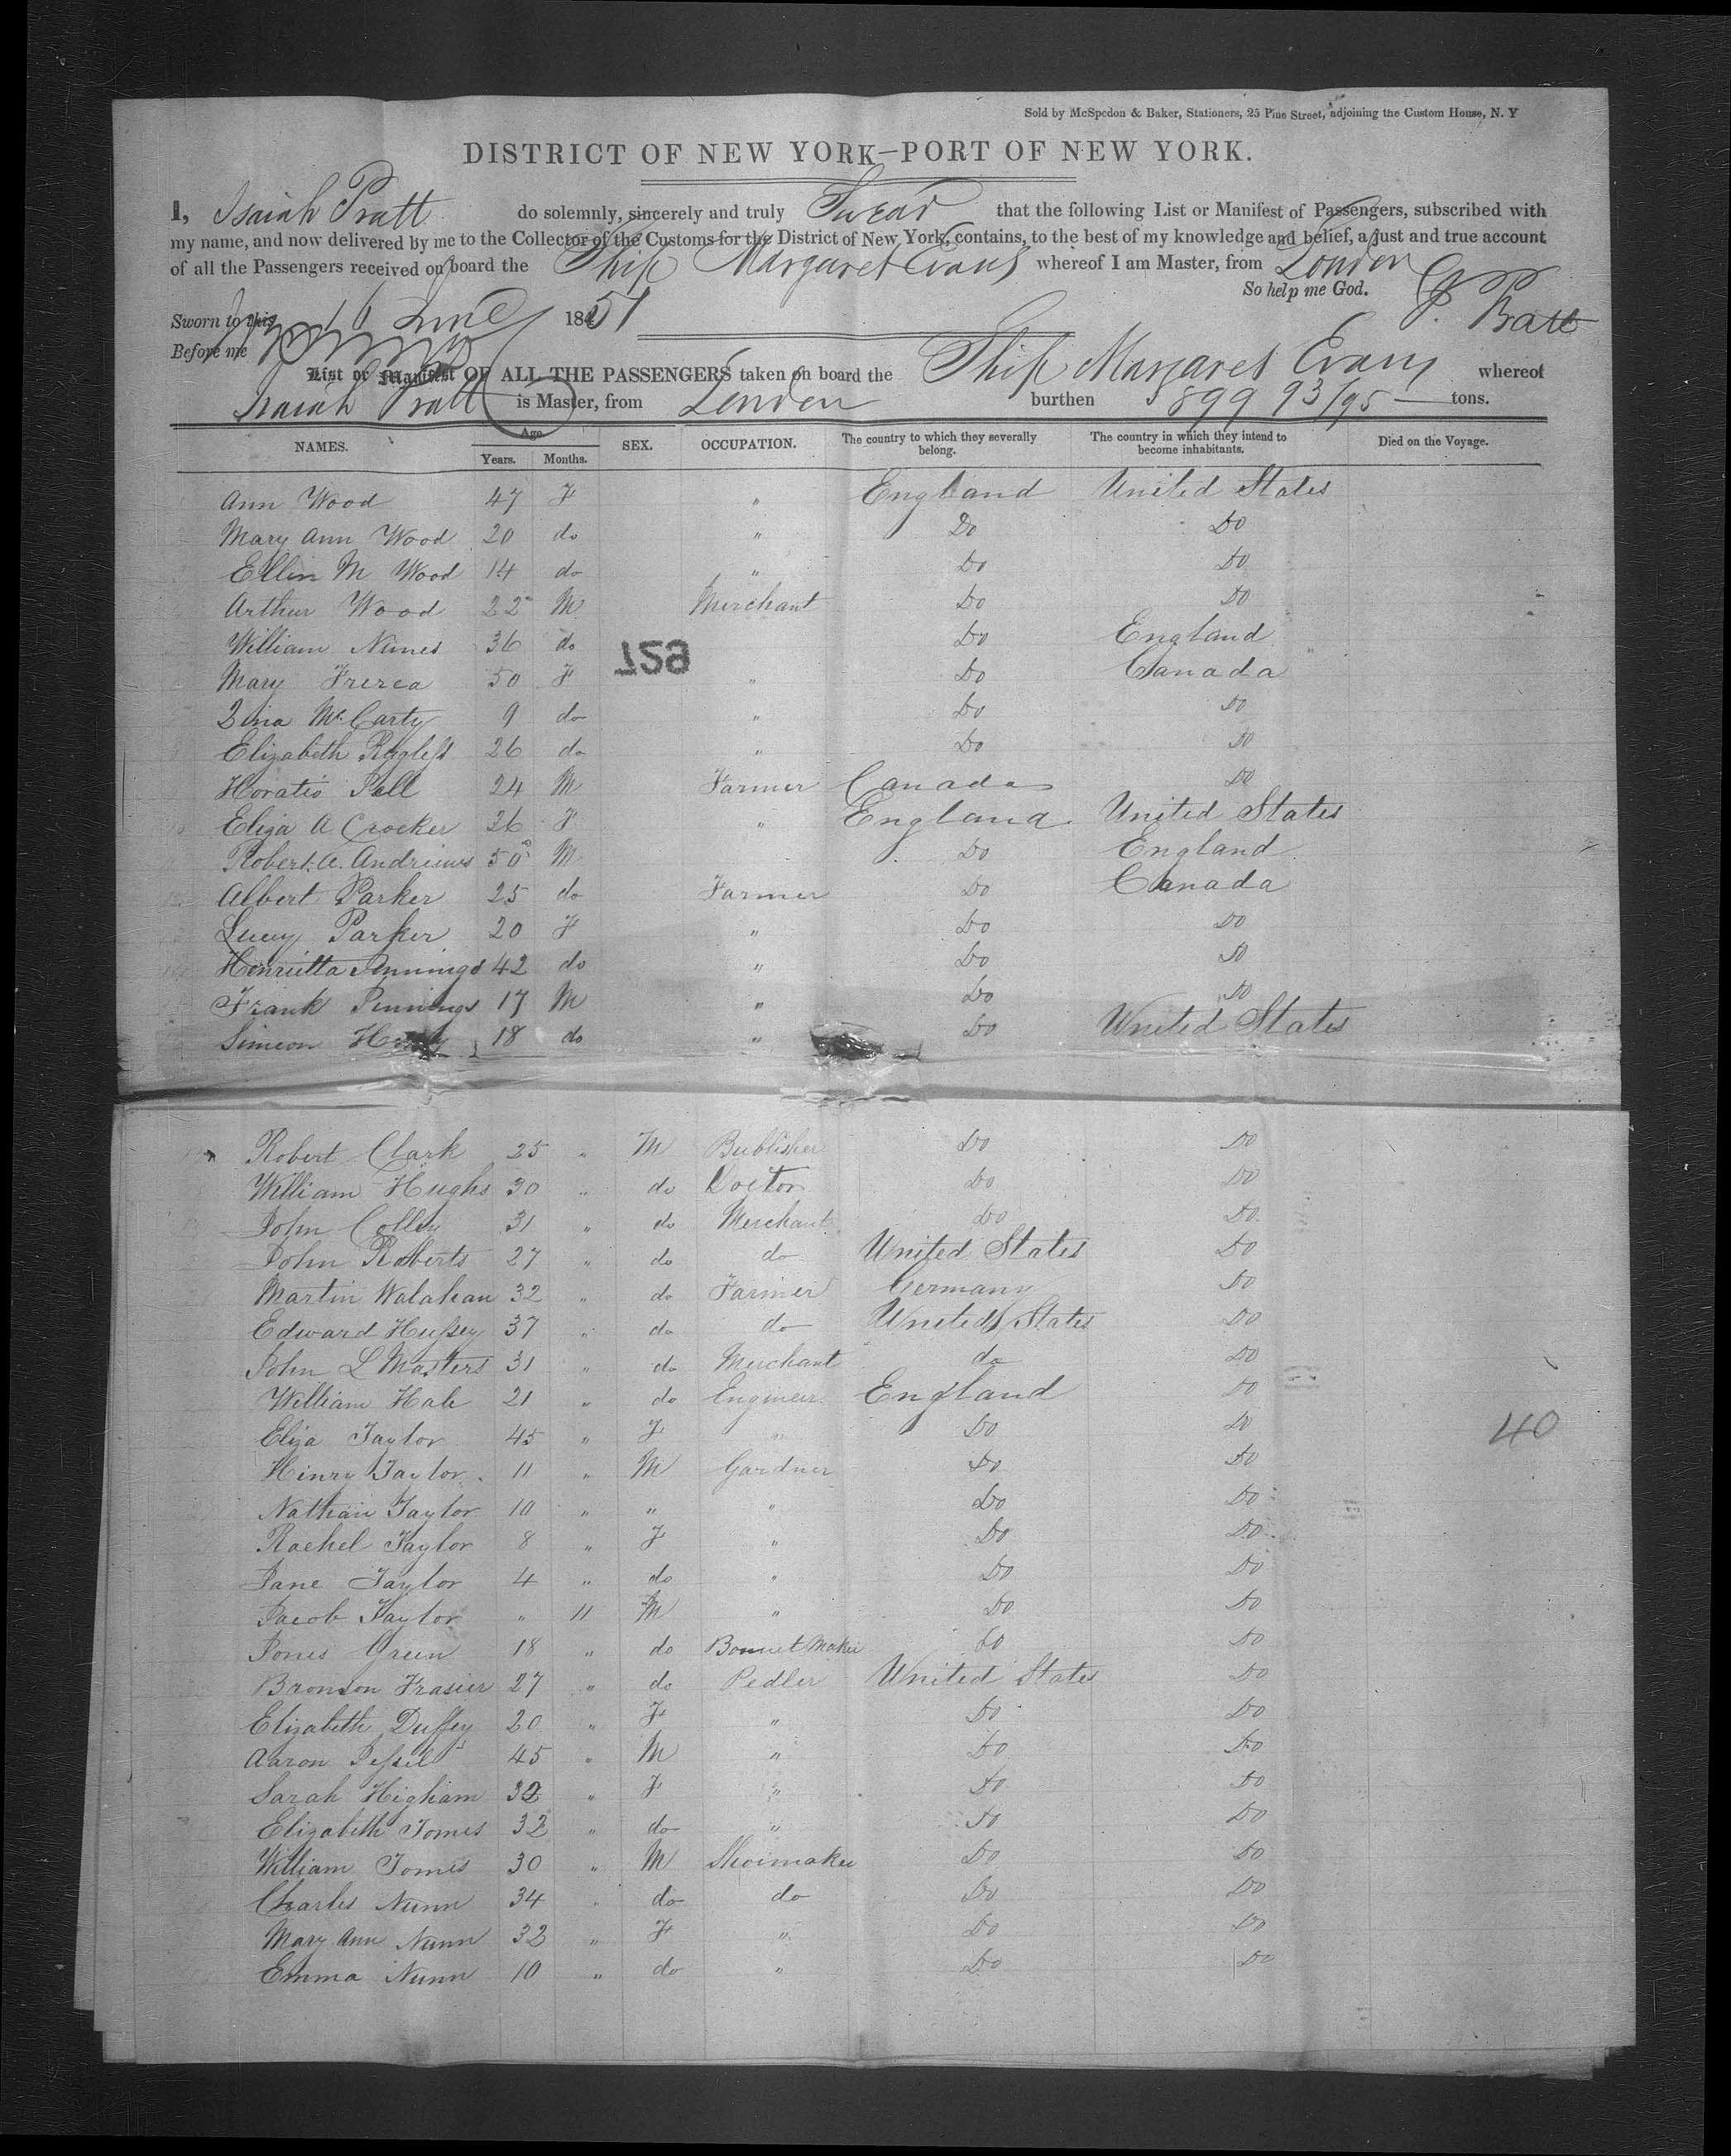 Sold by McSpedon & Baker, Stationers, 25 Pine Street, adjoining the Custom House, N. Y
DISTRICT OF NEW YORK—PORT OF NEW YORK.
I, Isaiah Pratt do solemnly, sincerely and truly Swear that the following List or Manifest of Passengers, subscribed with
my name, and now delivered by me to the Collector of the Customs for the District of New York, contains, to the best of my knowledge and belief, a just and true account
of all the Passengers received on board the Ship Margaret Evans whereof I am Master, from London
So help me God.
I. Pratt
Sworn to this 16 June 1851
Before me
List or Manifest OF ALL THE PASSENGERS taken on board the Ship Margaret Evans whereof
Isaiah Pratt is Master, from London burthen 899 93/95 tons.
NAMES. Age. Years. Months. SEX. OCCUPATION. The country to which they severally belong. The country in which they intend to become inhabitants. Died on the Voyage.
Ann Wood 47 F " England United States
Mary Ann Wood 20 do " Do Do
Ellin M Wood 14 do " Do Do
Arthur Wood 22 M Merchant Do Do
William Nunes 36 do Do England
729
Mary Frerea 50 F " Do Canada
Mc Carty 9 do " Do Do
Elizabeth 26 do " Do Do
Horatio Pell 24 M Farmer Canada Do
Eliza A Crocker 26 F " England United States
Robert. A. Andrews 50 M Do England
Albert Parker 25 do Farmer Do Canada
Lucy Parker 20 F " Do Do
Henrietta Jennings 42 do " Do Do
Frank Jennings 17 M " Do Do
Simeon 18 do " Do United States
Robert Clark 25 " M Bublisher Do Do
William Hughs 30 " do Doctor Do Do
John Colley 31 " do Merchant do Do
John Roberts 27 " do do United States Do
Martin Walahan 32 " do Farmer Germany Do
Edward Hussey 37 " do do United States Do
John L Masters 31 " do Merchant do Do
William Hale 21 " do Engineer England Do
Eliza Taylor 45 " F " Do Do
40
Henry Taylor 11 " M Gardner Do Do
Nathan Taylor 10 " " " Do Do
Rachel Taylor 8 " F " Do Do
Jane Taylor 4 " do " Do Do
Jacob Taylor " 11 M " Do Do
Jones Green 18 " do Bonnet Maker do Do
Bronson Frasier 27 " do Pedler United States Do
Elizabeth Duffey 20 " F " Do Do
Aaron Jessel 45 " M " Do Do
Sarah Higham 32 " F " Do Do
Elizabeth Tomes 32 " do " Do Do
William Tomes 30 " M Shoemaker Do Do
Charles Nunn 34 " do do Do Do
Mary Ann Nunn 32 " F " Do Do
Emma Nunn 10 " do " Do Do